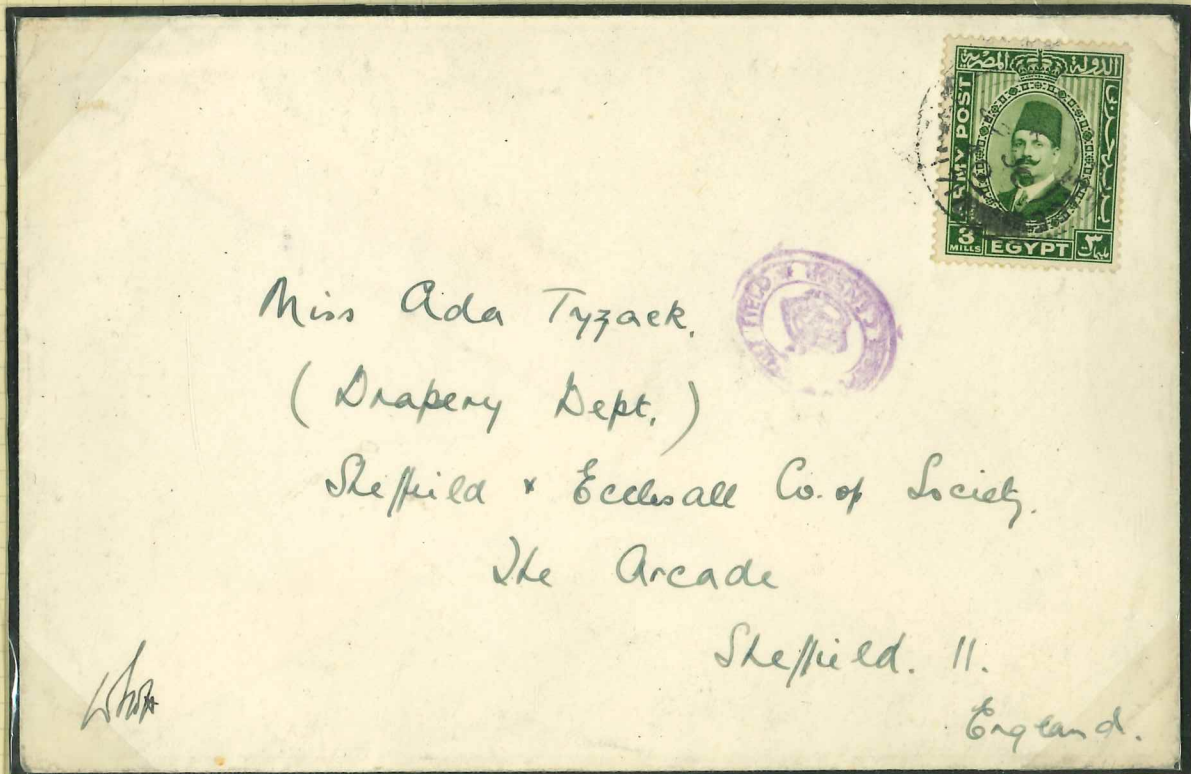 الدولة المصرية
ARMY POST
3
MILLS
EGYPT
٣
FIELD
Miss Ada Tyzack.
(Drapery Dept.)
Sheffield & Ecclesall Co. op Society.
The Arcade
Sheffield. 11.
England.